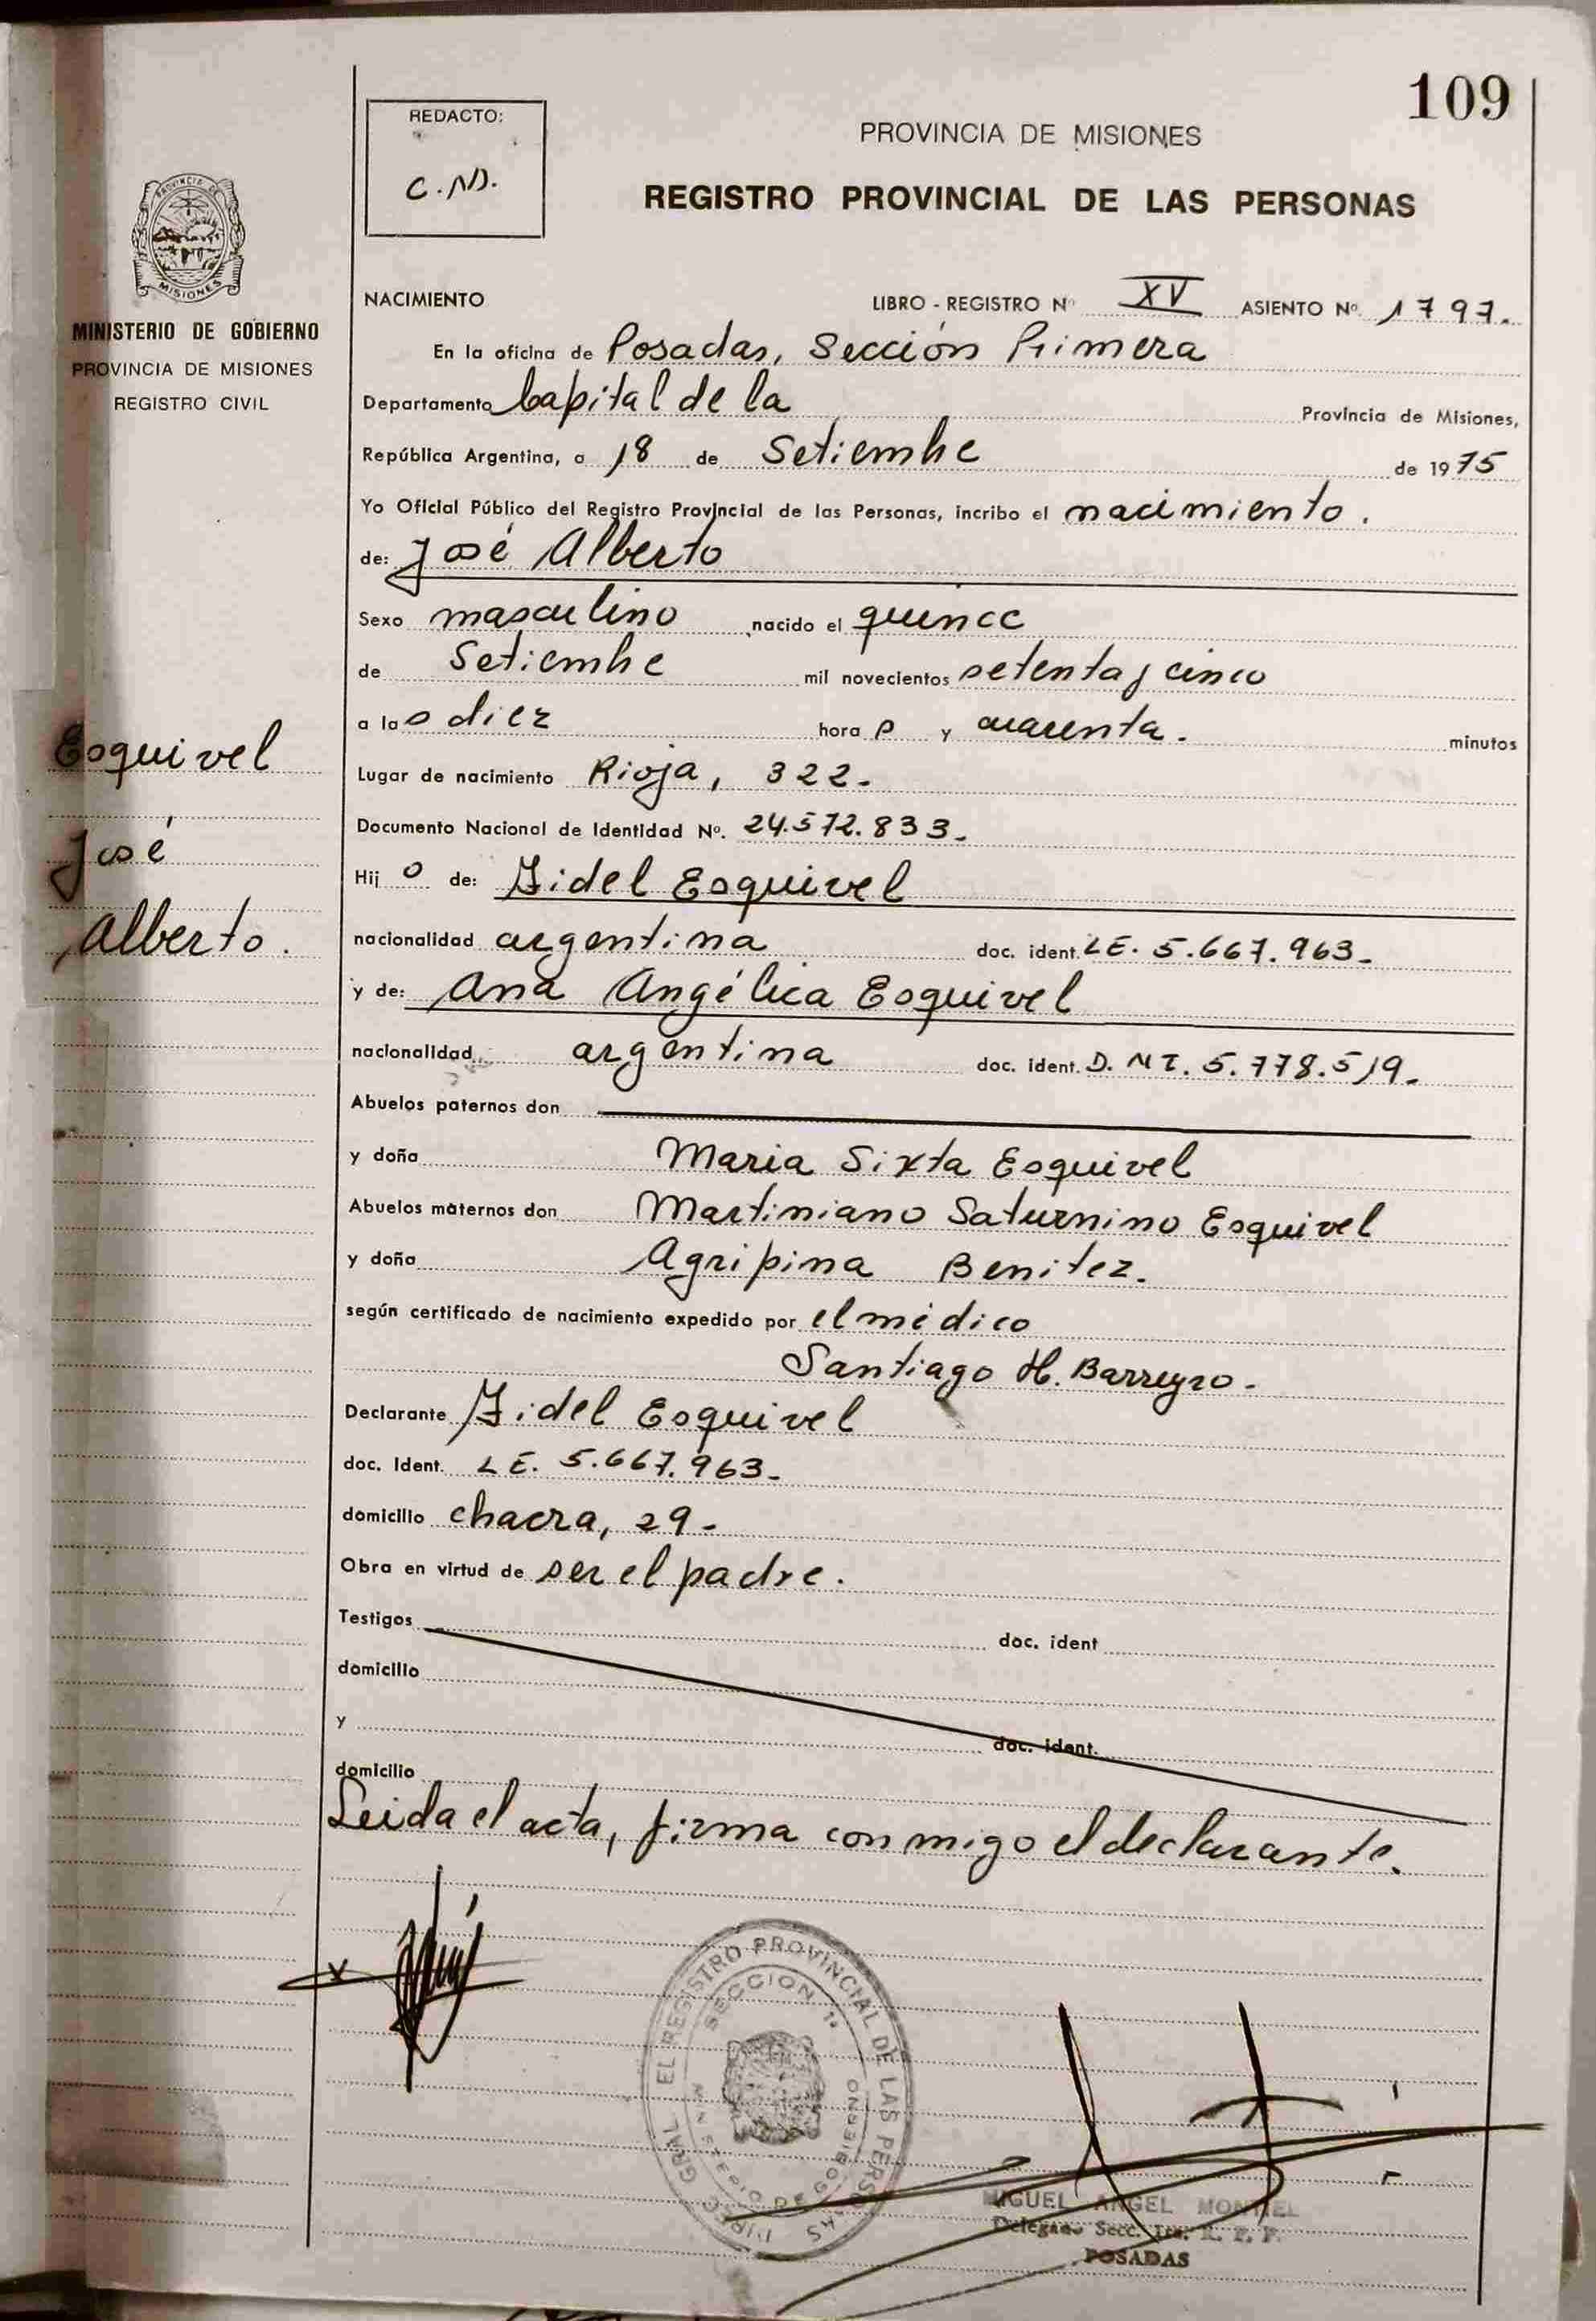 109
REDACTO:
C.ND.
PROVINCIA DE MISIONES
REGISTRO PROVINCIAL DE LAS PERSONAS
PROVINCIA DE
MISIONES
MINISTERIO DE GOBIERNO
PROVINCIA DE MISIONES
REGISTRO CIVIL
NACIMIENTO LIBRO - REGISTRO Nº XV ASIENTO Nº. 1797.
En la oficina de Posadas, Sección Primera
Departamento Capital de la Provincia de Misiones,
República Argentina, a 18 de Setiembre de 1975
Yo Oficial Público del Registro Provincial de las Personas, incribo el nacimiento.
de: José Alberto
Sexo masculino nacido el quince
de Setiembre mil novecientos setenta y cinco
a las diez hora s y cuarenta. minutos
Lugar de nacimiento Rioja, 322.
Documento Nacional de Identidad Nº. 24.572.833.
Hij o de: Fidel Esquivel
nacionalidad argentina doc. ident. LE. 5.667.963.
y de: Ana Angélica Esquivel
nacionalidad argentina doc. ident. D. NI. 5.778.519.
Abuelos paternos don
y doña Maria Sixta Esquivel
Abuelos maternos don Martiniano Saturnino Esquivel
y doña Agripina Benitez.
según certificado de nacimiento expedido por el médico
Santiago H. Barreyro.
Declarante Fidel Esquivel
doc. Ident. LE. 5.667.963.
domicilio chacra, 29.
Obra en virtud de ser el padre.
Testigos doc. ident
domicilio
y doc. ident.
domicilio
Leida el acta, firma conmigo el declarante.
Esquivel
José
Alberto.
DIREC. GRAL EL REGISTRO PROVINCIAL DE LAS PERSONAS
SECCION 1ª
MINISTERIO DE GOBIERNO
MIGUEL ANGEL MONTIEL
Delegado Secc. 1ra. R. P. P.
POSADAS